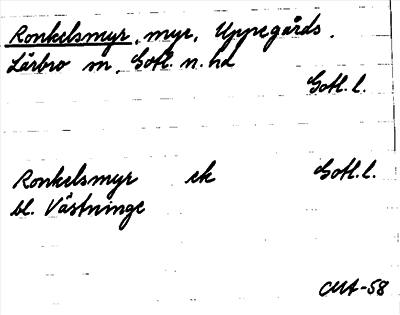 Ronkelsmyr, myr, Uppegårds,
Lärbro sn, Gotl. n. hd
Gotl. l.
Ronkelsmyr ek Gotl. l.
bl. Västninge
CMA-58